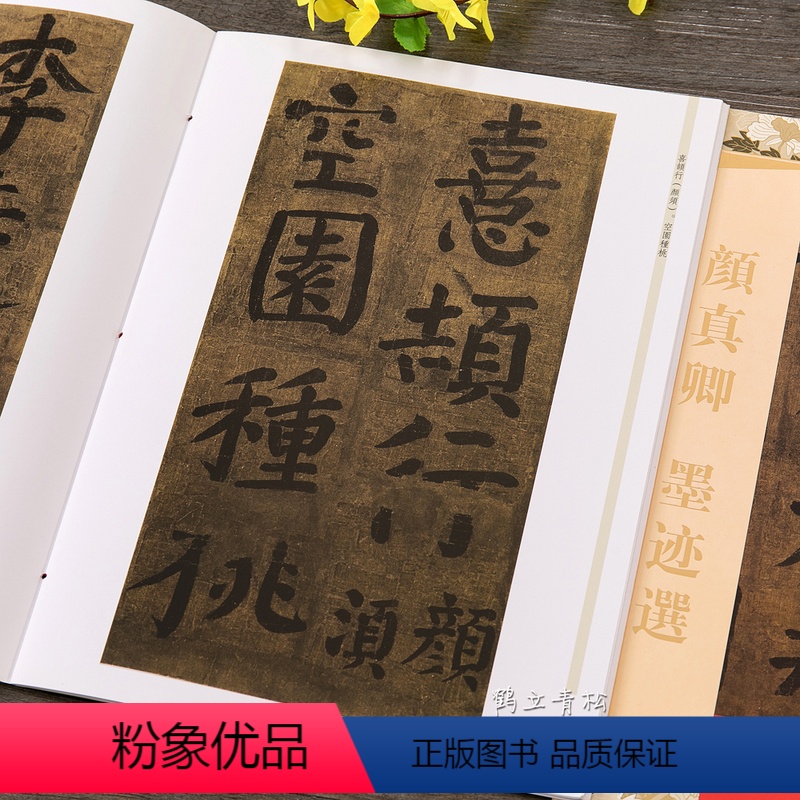 憙頡行
顏
湏
空園種桃
李
喜頡行（顏須）。空園種桃
顔真卿 墨迹選
鹤立青松
粉象优品
正版图书 品质保证